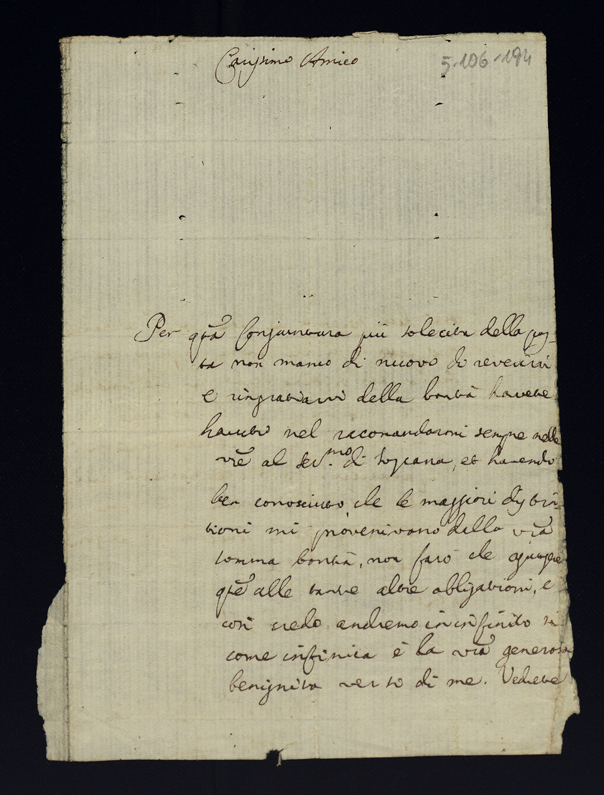 Carissimo Amico
5-106-194
Per qsta Conjuntura più solecita della pos-
ta non manco di nuovo di reverirvi
e ringratiarvi della bontà havete
hauto nel racomandarmi sempre nelle
vre al Ser.mo di Toscana, et havendo
ben conosciuto che le maggiori distin-
tioni mi provenivano dalla vra
somma bontà, non farò che
qste alle tante altre obligationi, e
così credo andremo in infinito si
come infinita è la vra generosa
benignita verso di me. Vedrete